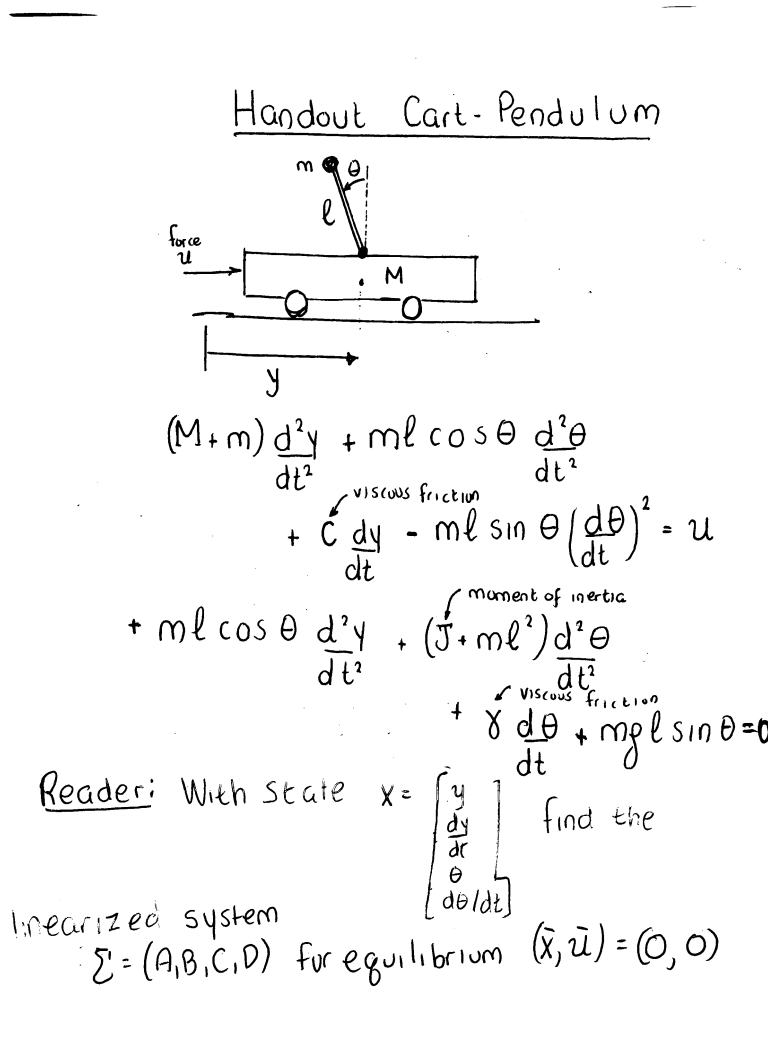 Handout Cart-Pendulum
m θ
l
force
u
M
y
(M+m) d²y/dt² + ml cos θ d²θ/dt²
viscous friction
+ C dy/dt - ml sin θ (dθ/dt)² = u
moment of inertia
+ ml cos θ d²y/dt² + (J+ml²) d²θ/dt²
viscous friction
+ γ dθ/dt + mgl sin θ = 0
Reader: With state x = [y dy/dt θ dθ/dt] find the
linearized system
Σ = (A,B,C,D) for equilibrium (x̄, ū) = (0, 0)